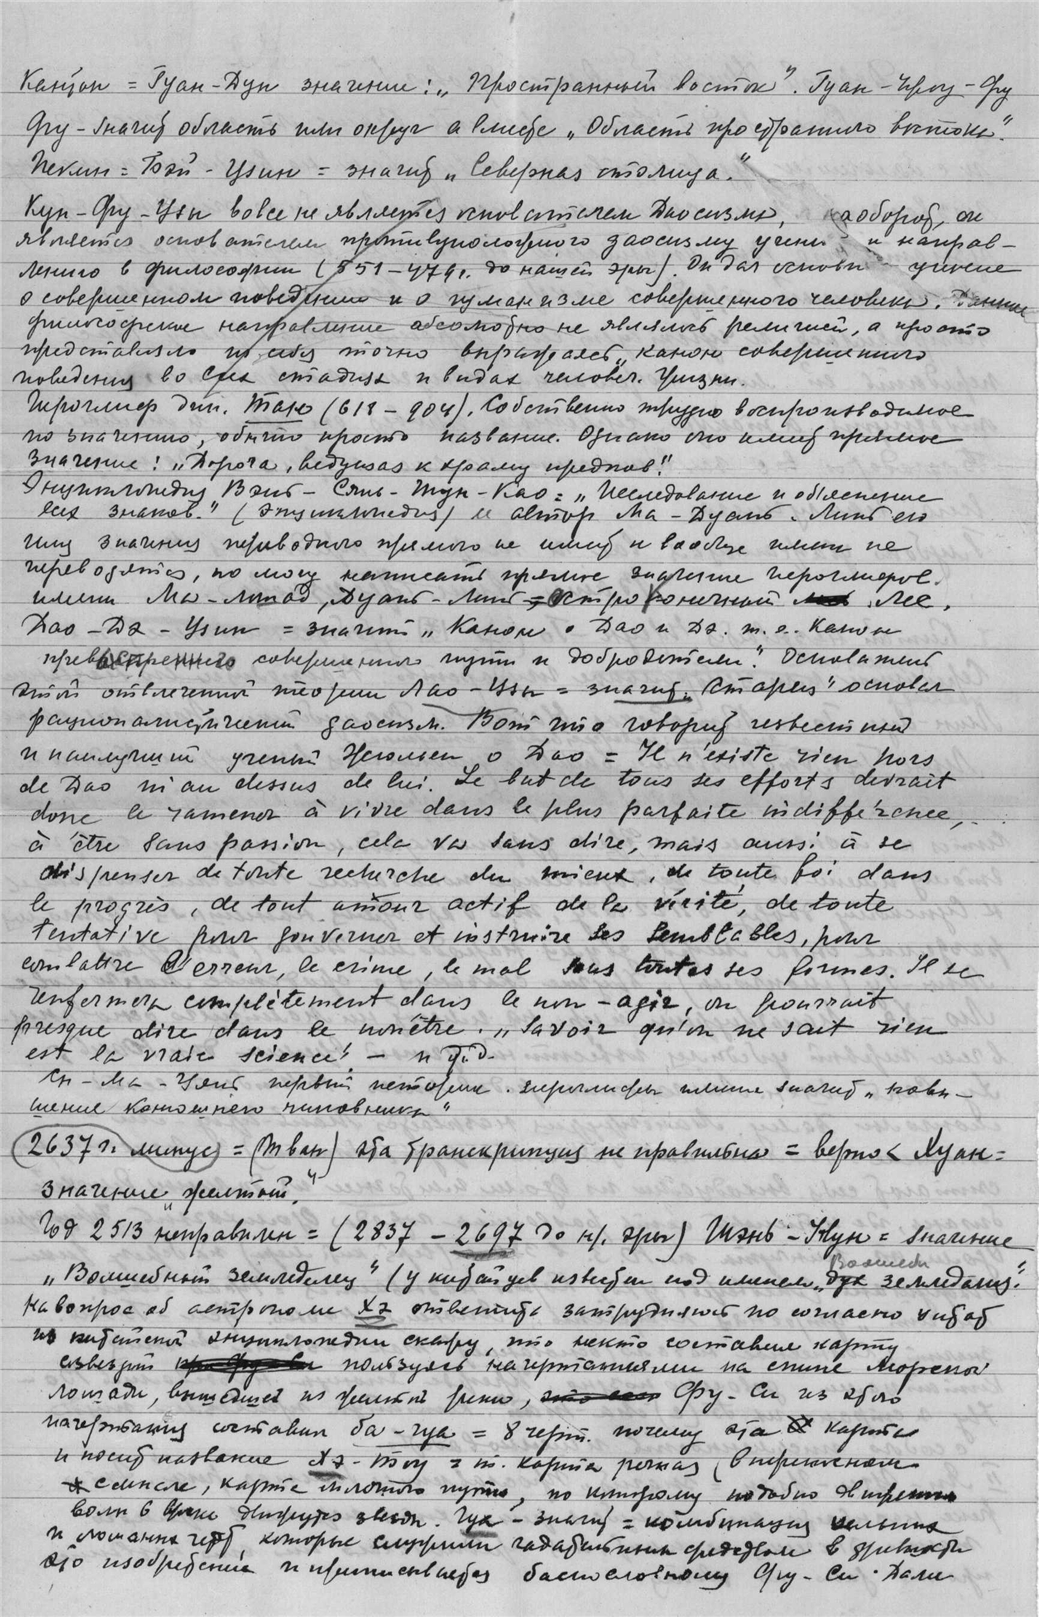 Кантон = Гуан-Дун значение: „Пространный восток". Гуан-Чжоу-Фу
Фу - значит область или округ а вместе „Область пространного востока".
Пекин = Бэй-Цзин = значит „Северная столица."
Кун-Фу-Цзы вовсе не является основателем Даосизма, наоборот, он
является основателем противуположного даосизму учения и направ-
ления в философии (551-479 г. до нашей эры). Он дал основы учение
о совершенном поведении и о гуманизме совершенного человека. Данное
философское направление абсолютно не являлось религией, а просто
представляло из себя точно выражаясь „канон совершенного
поведения во всех стадиях и видах человеч. жизни.
Иероглиф дин. Тан (618-904). Собственно трудно воспроизводимое
по значению, обычно просто название. Однако оно имеет прямое
значение: „Дорога, ведущая к храму предков!"
Энциклопедия Вэнь-Сянь-Тун-Као = „Исследование и объяснение
всех знаков." (Энциклопедия) и автор Ма-Дуань-Линь его
имя значения переводного прямого не имеет и вообще имена не
переводятся, но могу написать прямое значение иероглифов.
имени Ма-лошадь, Дуань-Линь = остроконечный лес.
Дао-Дэ-Цзин = значит „Канон о Дао и Дэ. т.е. Канон
совершенного пути и добродетели". Основатель
этой отвлеченной теории Лао-Цзы = значит „Старец" основал
рационалистический даосизм. Вот что говорит известный
и наилучший ученый о Дао = Il n'existe rien hors
de Dao ni au dessus de lui. Le but de tous ses efforts devrait
donc le ramener à vivre dans le plus parfaite indifférence,
à être sans passion, cela va sans dire, mais aussi à se
dispenser de toute recherche du mieux, de toute foi dans
le progrès, de tout amour actif de la vérité, de toute
tentative pour gouverner et instruire ses semblables, pour
combattre l'erreur, le crime, le mal sous toutes ses formes. Il se
renfermera complètement dans le non-agir, on pourrait
presque dire dans le non être. „Savoir qu'on ne sait rien
est la vraie science" - и т.д.
Сы-Ма-Цянь первый историк. иероглифы имени значат „повы-
шение конюшнего чиновника"
2637 г. минус = (Тван) эта транскрипция не правильна = верно < Хуан =
значение „желтый."
Год 2513 неправилен = (2837 - 2697 до н/. эры) Шэнь-Нун = значение
„Волшебный земледелец" (у китайцев известен под именем „дух земледелия".
На вопрос об астрономе Хэ ответить затрудняюсь но согласно цитат
из китайской энциклопедии скажу, что некто составил карту
созвездий пользуясь начертаниями на спине морской
лошади, вышедшей из желтой реки, Фу-Си из этого
начертания составил ба-гуа = 8 черт. почему эта карта
и носит название Хэ-Ту = т. карта речная (в переносном
смысле, карта млечного пути, по которому подобно движению
волн в реке движутся звезды. Гуа - значит = комбинация цельных
и ломанных черт, которые служили гадательным средством в древности
это изобретение и приписывается баснословному Фу-Си. Дали